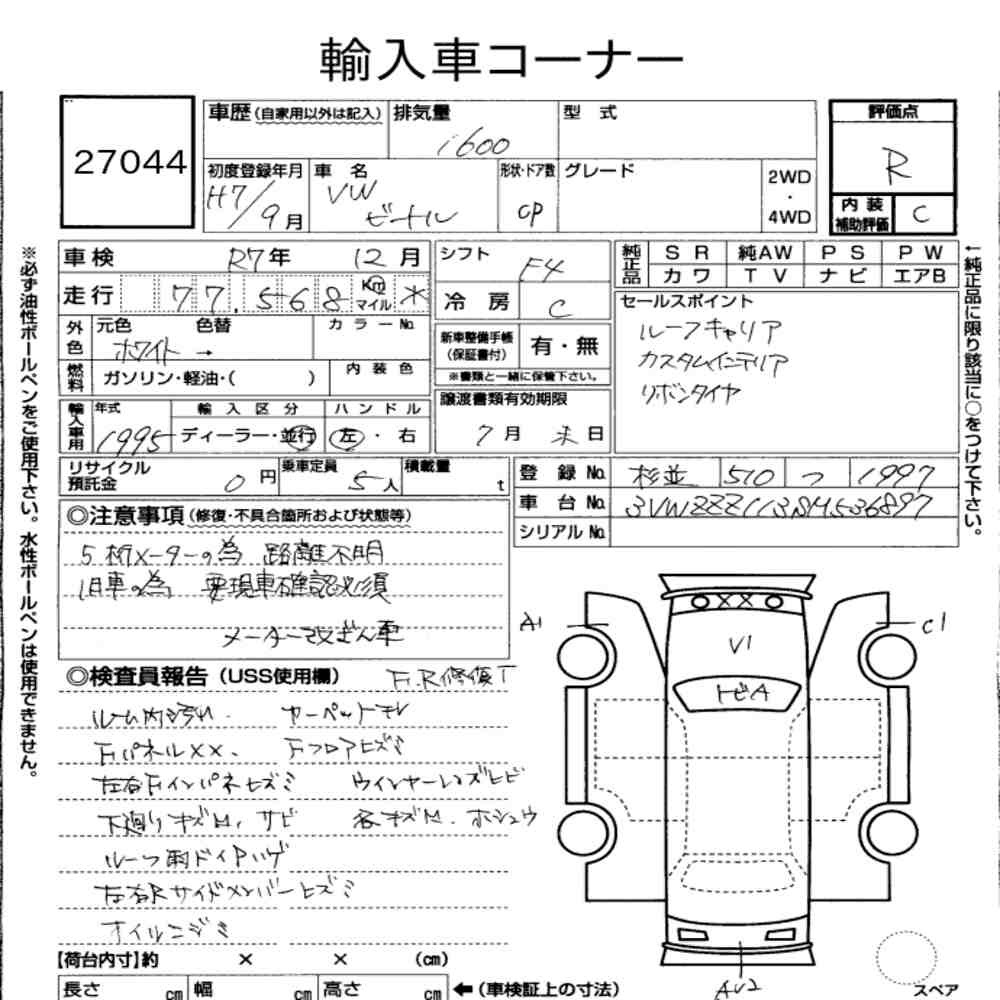 輸入車コーナー
27044
車歴(自家用以外は記入) 排気量 1600 型 式
初度登録年月 H7/9月 車 名 VW ビートル 形状・ドア数 CP グレード 2WD・4WD
評価点 R
内 装 補助評価 C
車検 R7年 12月
走行 77,568 Km マイル *
外色 元色 ホワイト → 色替 カラーNo.
燃料 ガソリン・軽油・( ) 内 装 色
輸入車用 年式 1995 輸 入 区 分 ディーラー・並行 ハ ン ド ル 左・右
シフト F4
冷 房 C
新車整備手帳(保証書付) 有・無
※書類と一緒に保管下さい。
譲渡書類有効期限
7月 末日
純正品 SR 純AW PS PW
カワ TV ナビ エアB
セールスポイント
ルーフキャリア
カスタムインテリア
リボンタイヤ
←純正品に限り該当に○をつけて下さい。
※必ず油性ボールペンをご使用下さい。水性ボールペンは使用できません。
リサイクル預託金 0円 乗車定員 5人 積載量 t
登 録 No. 杉並 510 つ 1997
車 台 No. 3VWZZZ113SM536897
シリアル No.
◎注意事項(修復・不具合箇所および状態等)
5桁メーターの為 距離不明
旧車の為 要現車確認必須
メーター改ざん車
◎検査員報告(USS使用欄) F.R修復T
ルーム内汚れ. カーペットヤレ
FパネルXX. Fフロアヒズミ
左右Fインパネヒズミ ウインカーレンズヒビ
下廻りキズM. サビ 各キズM. ホシュウ
ルーフ雨ドイPハゲ
左右Rサイドメンバーヒズミ
オイルニジミ
A1
XX
C1
V1
トビA
AU2
スペア
【荷台内寸】約 × × (cm)
長さ cm 幅 cm 高さ cm ←(車検証上の寸法)